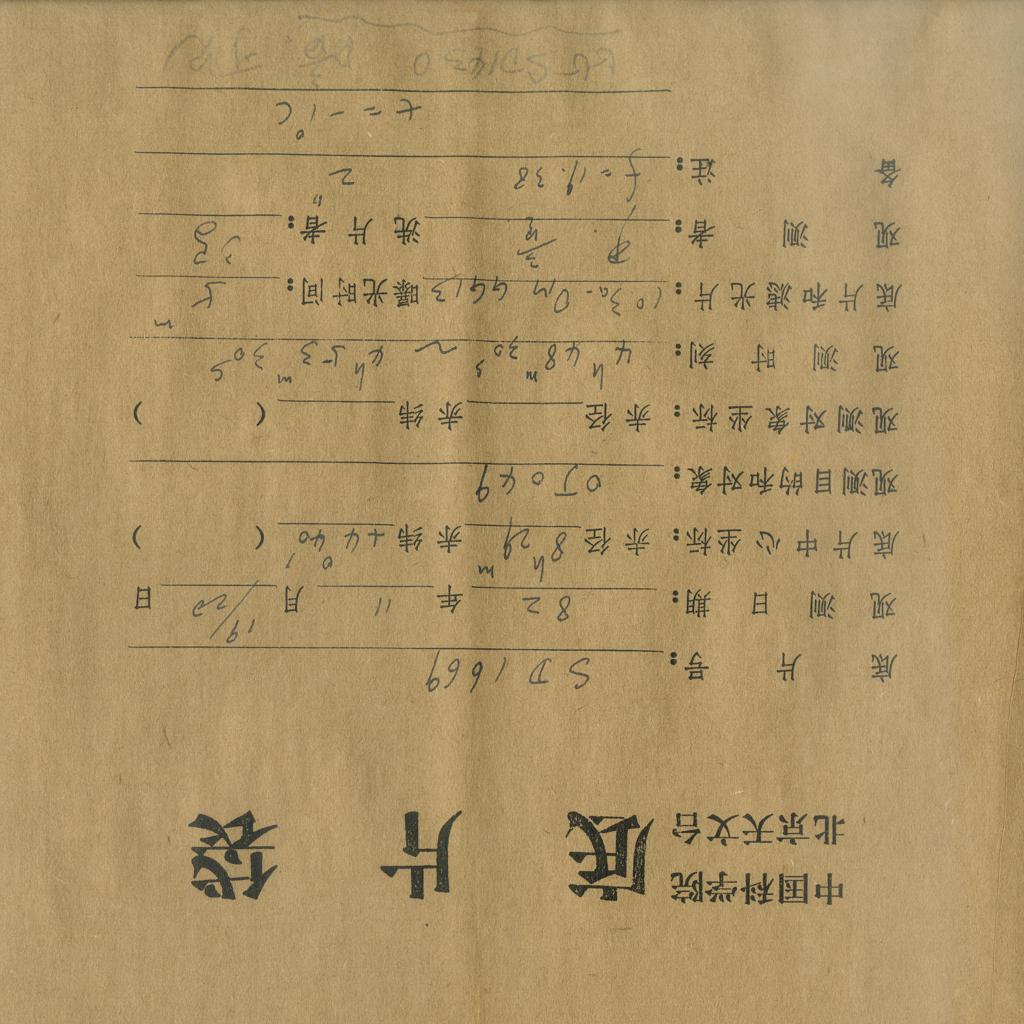 中国科学院
北京天文台
底片袋
底片号: SD1669
观测日期: 82年11月19/20日
底片中心坐标: 赤径 8h29m 赤纬 +44°40′ ( )
观测目的和对象: OJ049
观测对象坐标: 赤径 赤纬 ( )
观测时刻: 4h48m30s ~ 4h53m30s
底片和滤光片: 103a-O GG13 曝光时间: 5m
观测者: 洗片者:
备注: f=11.38 2"
t=-1°C
SD1430